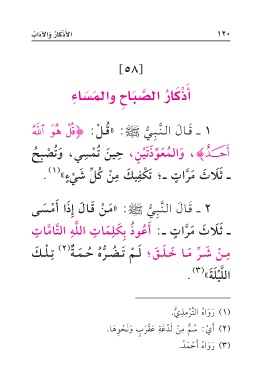 ١٢٠ الأَذْكَارُ وَالآدَابُ
[٥٨]
أَذْكَارُ الصَّبَاحِ والمَسَاءِ
١ ـ قَالَ النَّبِيُّ ﷺ: «قُلْ: ﴿قُلْ هُوَ ٱللَّهُ
أَحَـدٌ﴾، وَالمُعَوِّذَتَيْنِ، حِينَ تُمْسِي، وَتُصْبِحُ
ـ ثَلَاثَ مَرَّاتٍ ـ؛ تَكْفِيكَ مِنْ كُلِّ شَيْءٍ»(١).
٢ ـ قَالَ النَّبِيُّ ﷺ: «مَنْ قَالَ إِذَا أَمْسَى
ـ ثَلَاثَ مَرَّاتٍ ـ: أَعُوذُ بِكَلِمَاتِ اللَّهِ التَّامَّاتِ
مِنْ شَـرِّ مَـا خَـلَـقَ؛ لَـمْ تَـضُـرُّهُ حُـمَـةٌ(٢) تِـلْـكَ
اللَّيْلَةَ»(٣).
(١) رَوَاهُ التِّرْمِذِيُّ.
(٢) أَيْ: سُمٌّ مِنْ لَدْغَةِ عَقْرَبٍ وَنَحْوِهَا.
(٣) رَوَاهُ أَحْمَدُ.